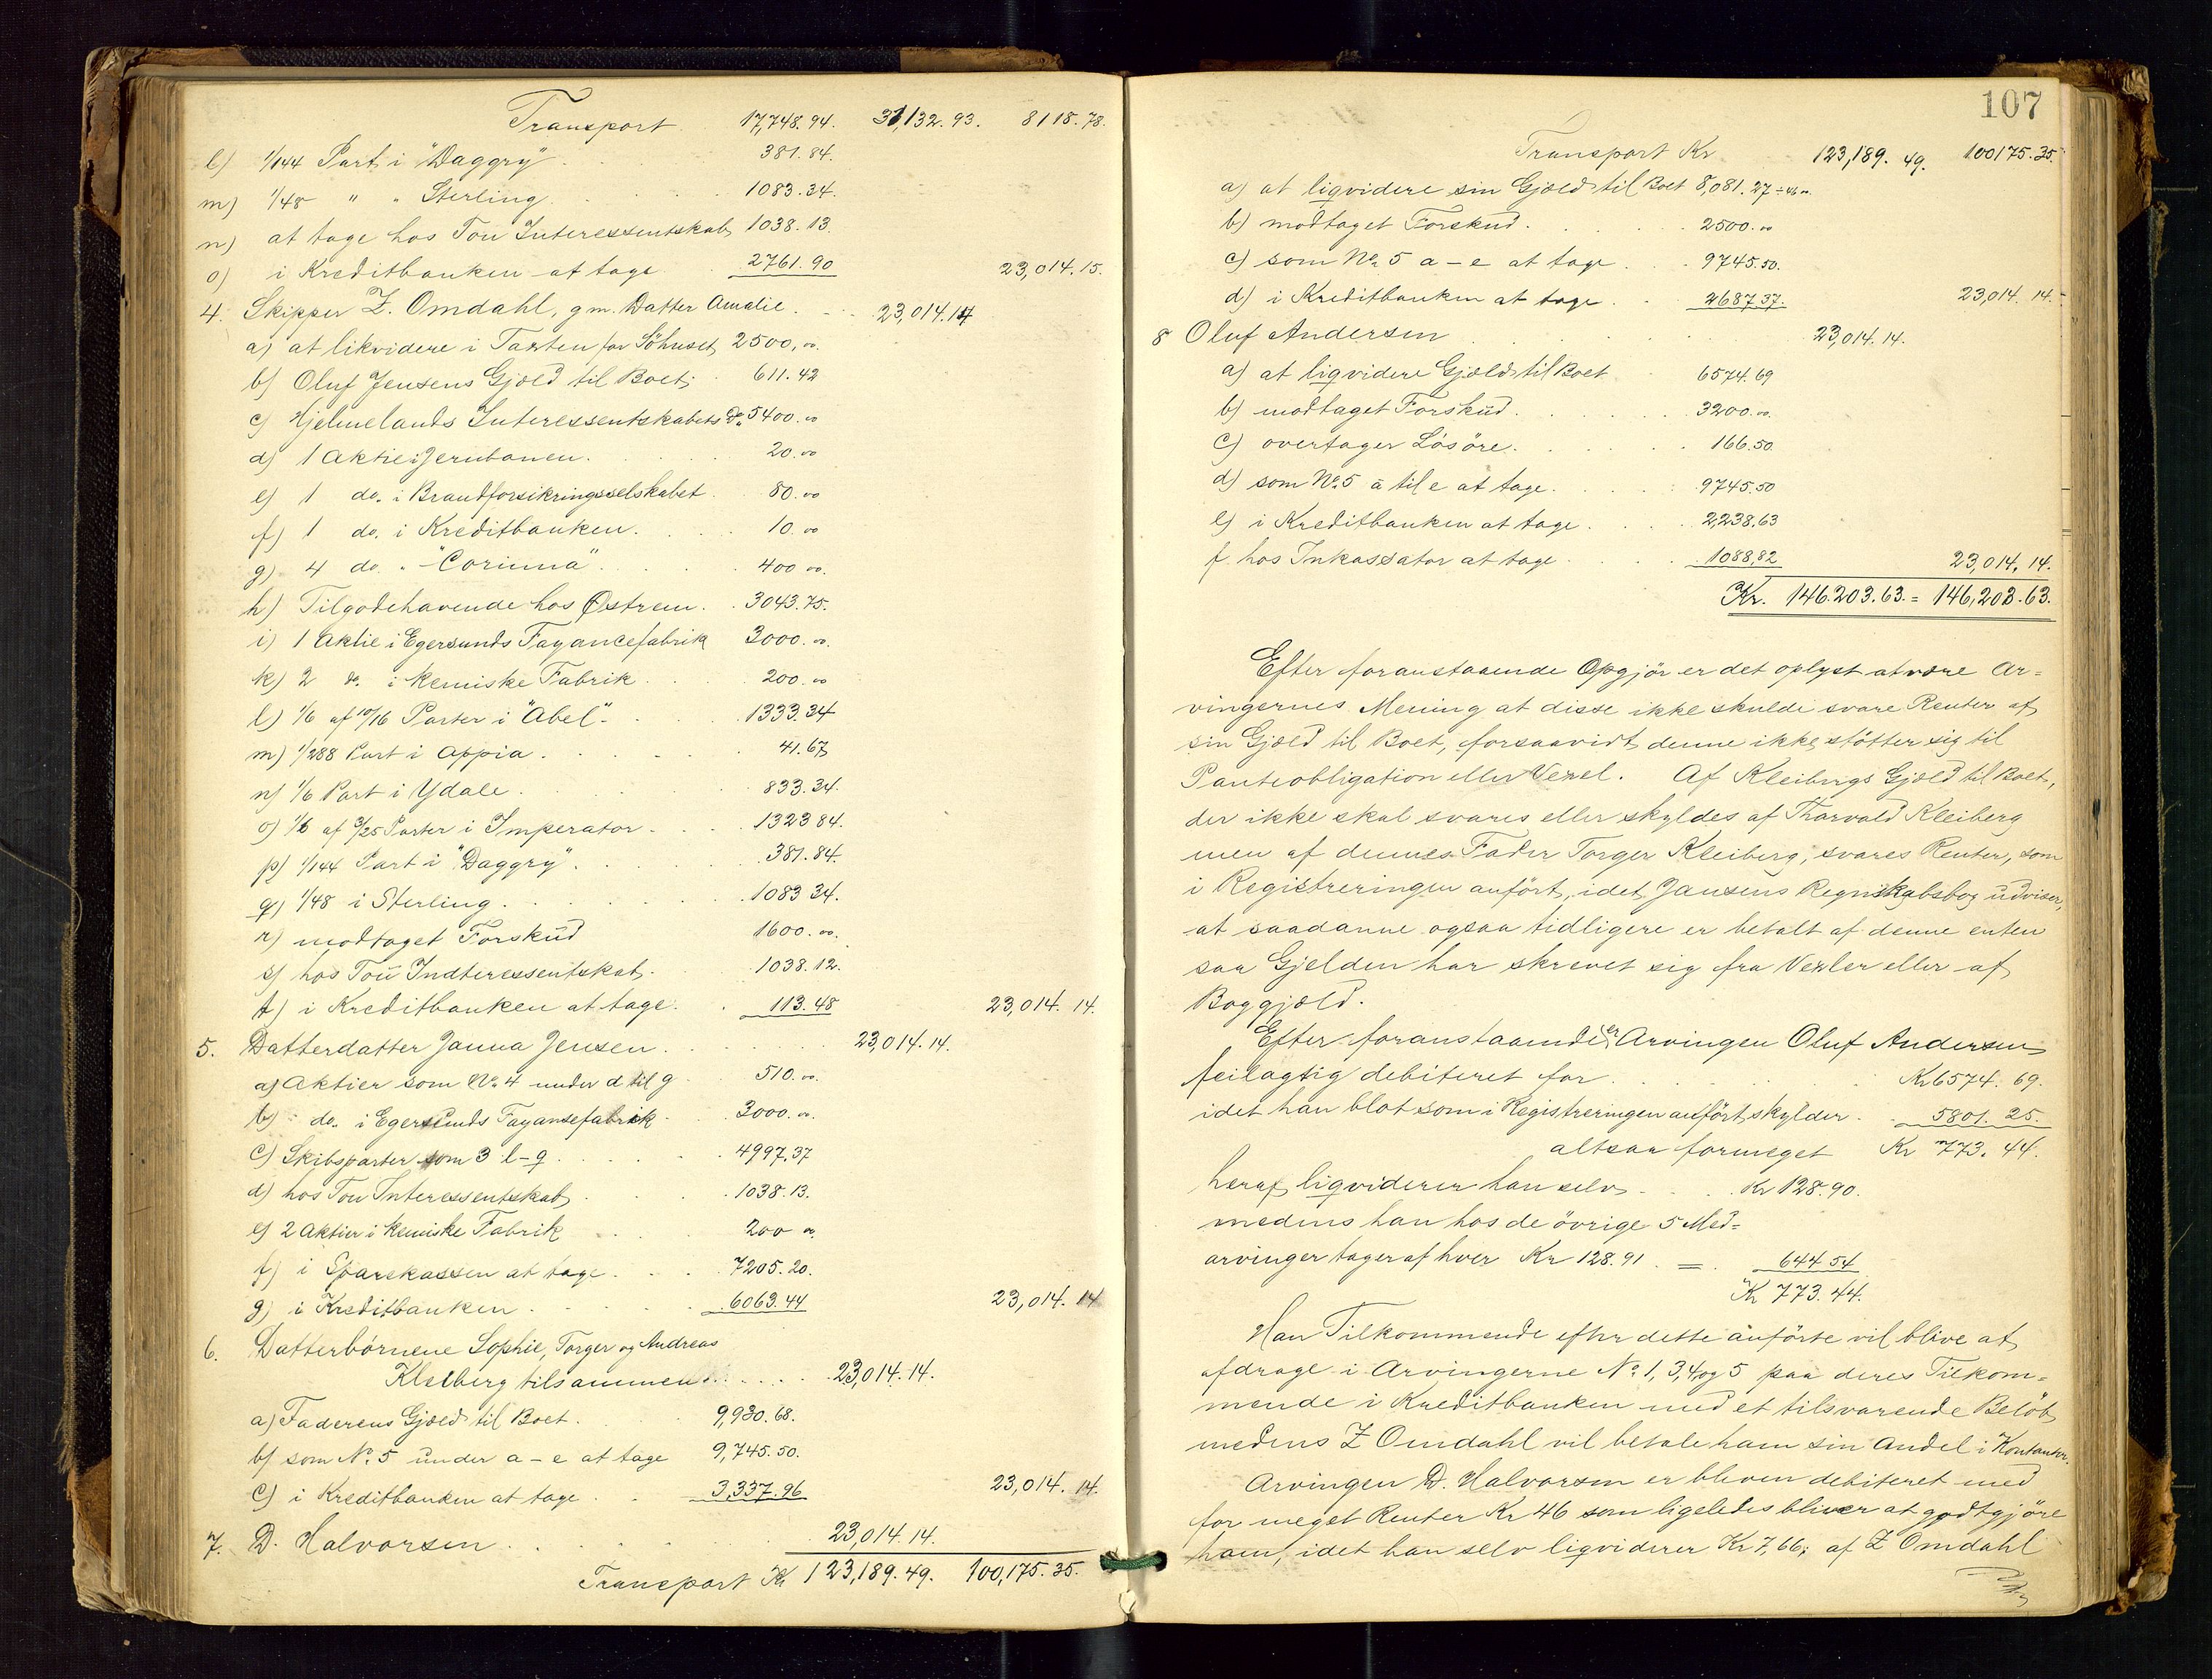 Transport 17,748.94. 31,132.93. 8118.78.
l) 1/144 Part i "Daggry" . 381.84.
m) 1/48 " " Sterling . 1083.34.
n) at tage hos Tou Interessentskab 1038.13.
o) i Kreditbanken at tage 2761.90 23,014.15.
4. Skipper Z. Omdahl, gm. Datter Amalie. 23,014.14
a) at likvidere i Taxten for Söhuset 2500.00.
b) Oluf Jensens Gjæld til Boet. 611.42
c) Hjelmelands Interessentskabets Do. 5400.00
d) 1 Aktie i Jernbanen. 20.00
e) 1 do. i Brandforsikringsselskabet. 80.00
f) 1 do. i Kreditbanken. 10.00
g) 4 do. " "Corinna". 400 00.
h) Tilgodehavende hos Østrem. 3043.75.
i) 1 Aktie i Egersunds Fayancefabrik 3000.00.
k) 2 do. i kemiske Fabrik. 200.00
l) 1/6 af 10/16 Parter i "Abel". 1333.34
m) 1/288 Part i Appia. 41.67
n) 1/6 Part i Ydale. 833.34.
o) 1/6 af 3/25 Parter i Imperator. 1323 84.
p) 1/144 Part i "Daggry". 381.84.
q) 1/48 i Sterling. 1083 34.
r) modtaget Forskud 1600.00.
s) hos Tou Indteressentskab. 1038.12.
t) i Kreditbanken at tage. 113.48 23,014.14.
5. Datterdatter Janna Jensen. 23,014.14.
a) Aktier som No. 4 under d til g 510.00.
b) do. i Egersunds Fayansefabrik 3000.00.
c) Skibsparter som 3 l-q. 4997.37
d) hos Tou Interessentskab. 1038.13.
e) 2 Aktier i kemiske Fabrik 200 00.
f) i Sparekassen at tage. 7205.20.
g) i Kreditbanken. 6063.44 23,014.14
6. Datterbörnene Sophie, Torger og Andreas
Kleiberg tilsammen. 23,014.14.
a) Faderens Gjæld til Boet. 9,930.68.
b) som No. 5 under a-e at tage 9,745.50.
c) i Kreditbanken at tage. 3,337.96 23,014.14.
7. D. Halvorsen. 23,014.14.
Transport Kr 123,189.49. 100,175.35.
107
Transport Kr 123,189.49. 100175.35.
a) at liqvidere sin Gjæld til Boet 8,081.27 ÷ 46 00.
b) modtaget Forskud. 2500.00
c) som No. 5 a-e at tage. 9745.50.
d) i Kreditbanken at tage. 2687 37. 23,014.14.
8 Oluf Andersen 23,014.14.
a) at liqvidere Gjæld til Boet 6574.69
b) modtaget Forskud. 3200.00.
c) overtager Lösöre. 166.50
d) som No. 5 a til e at tage. 9745.50
e) i Kreditbanken at tage. 2,238.63
f. hos Inkassator at tage. 1088,82 23,014,14.
Kr. 146.203.63. = 146,203.63.
Efter foranstaaende Opgjör er det oplyst at være Ar=
vingernes Mening at disse ikke skulde svare Renter af
sin Gjæld til Boet, forsaavidt denne ikke stötter sig til
Panteobligation eller Vexel. Af Kleibergs Gjæld til Boet,
der ikke skal svares eller skyldes af Thorvald Kleiberg
men af dennes Fader Torger Kleiberg, svares Renter, som
i Registreringen anfört, idet Jansens Regnskabsbog udviser,
at saadanne ogsaa tidligere er betalt af denne enten
saa Gjelden har skrevet sig fra Vexler eller af
Boggjæld.
Efter foranstaaende er Arvingen Oluf Andersen
feilagtig debiteret for. Kr 6574.69.
idet han blot som i Registreringen anfört, skylder. 5801.25.
altsaa formeget Kr 773.44.
heraf liqviderer han selv. Kr 128.90.
medens han hos de övrige 5 Med=
arvinger tager af hver Kr 128.91. = 644 54
Kr 773.44.
Hans Tilkommende efter dette anförte vil blive at
afdrage i Arvingerne No. 1, 3, 4 og 5 paa deres Tilkom=
mende i Kreditbanken med et tilsvarende Belöb,
medens Z Omdahl vil betale ham sin Andel i Kontanter.
Arvingen D. Halvorsen er bleven debiteret med
for meget Renter Kr 46 som ligeledes bliver at godtgjöre
ham, idet han selv liqviderer Kr 7,66; af Z Omdahl